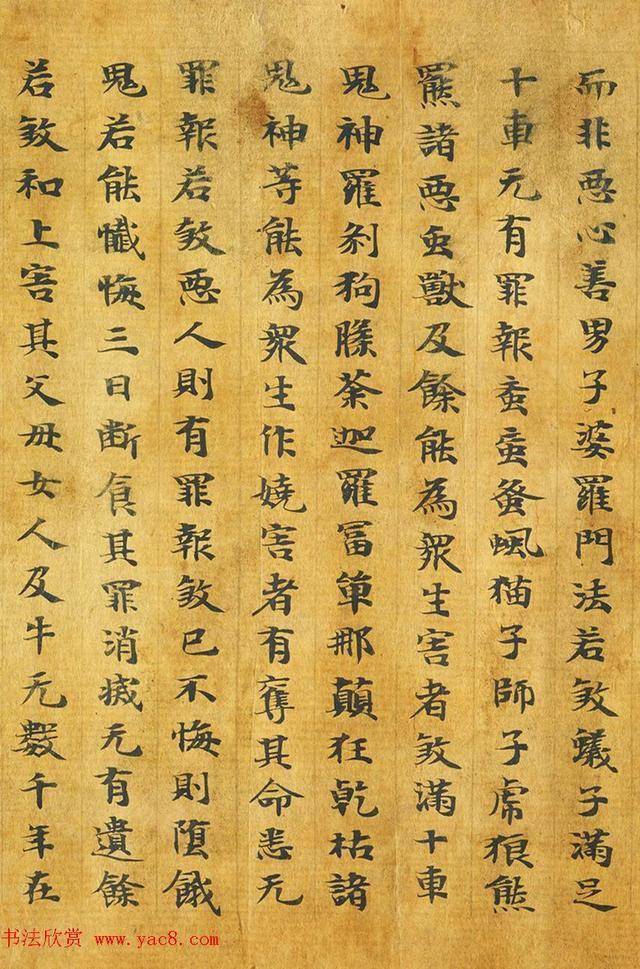 而非惡心善男子婆羅門法若煞蟻子滿足
十車无有罪報蚉䖟蚤虱猫子師子虎狼熊
羆諸惡虫獸及餘能為衆生害者煞滿十車
鬼神羅刹狗縢荼迦羅冨單那顛狂乹枯諸
鬼神等能為衆生作嬈害者有奪其命悉无
罪報若煞惡人則有罪報煞已不悔則堕餓
鬼若能懺悔三日断食其罪消滅无有遺餘
若煞和上害其父母女人及牛无數千年在
书法欣赏 www.yac8.com